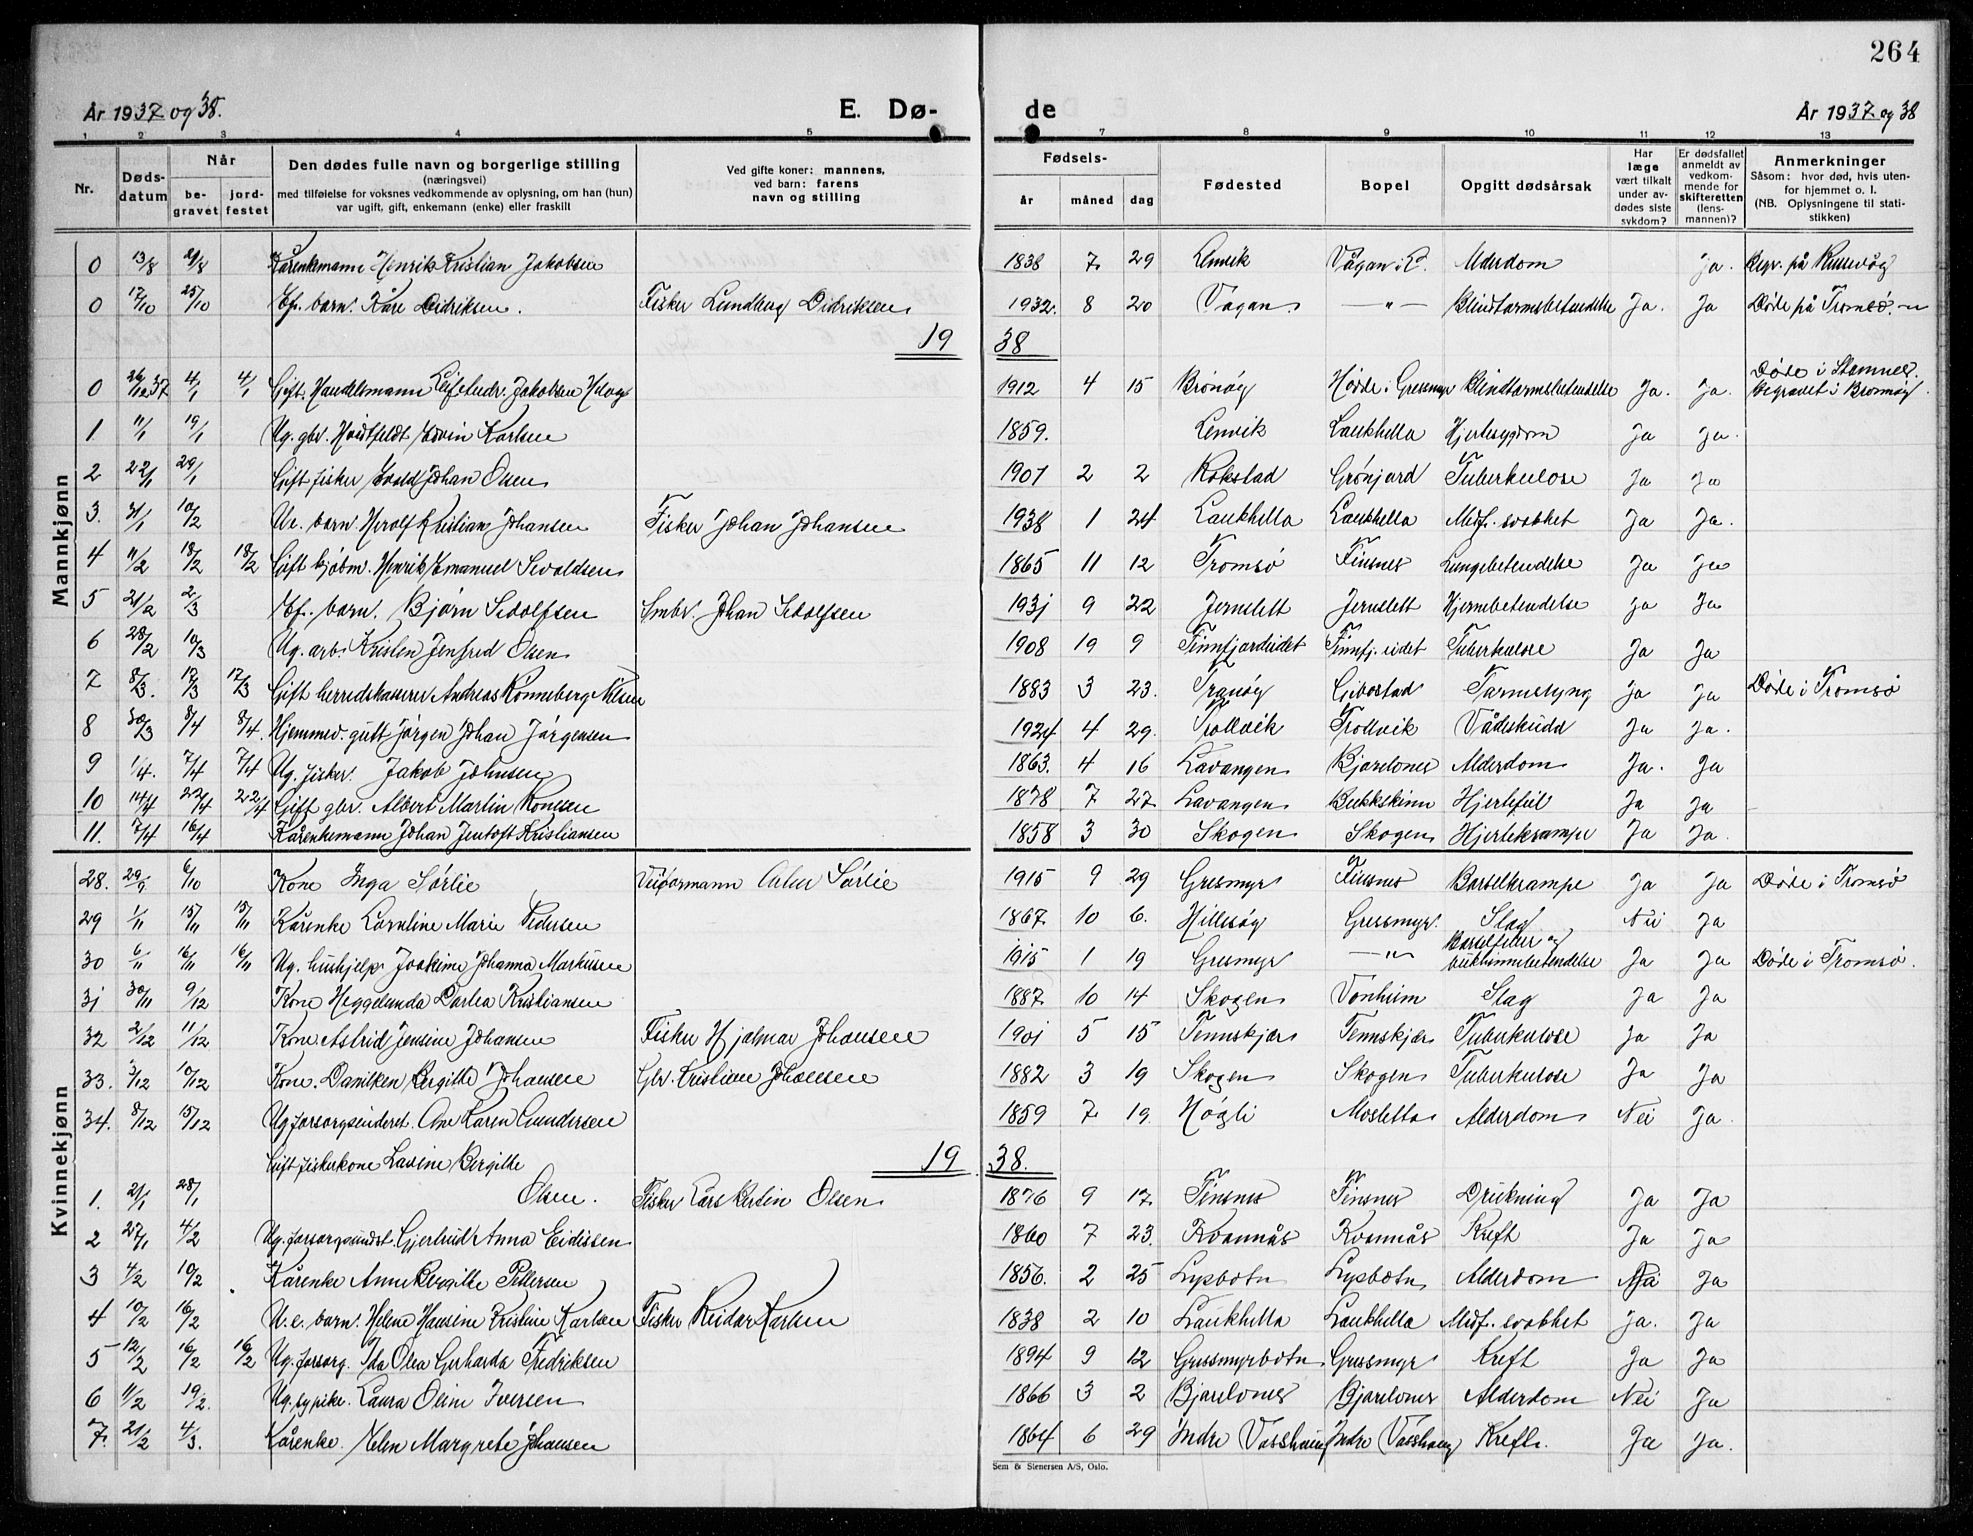 264
År 1937 og 38. E. Dø- de År 1937 og 38
1 2 3 4 5 7 8 9 10 11 12 13
Nr. Døds-datum Når be-gravet jord-festet Den dødes fulle navn og borgerlige stilling (næringsvei) med tilføielse for voksnes vedkommende av oplysning, om han (hun) var ugift, gift, enkemann (enke) eller fraskilt Ved gifte koner: mannens, ved barn: farens navn og stilling Fødsels- år måned dag Fødested Bopel Opgitt dødsårsak Har læge vært tilkalt under av-dødes siste sykdom? Er dødsfallet anmeldt av vedkom-mende for skifteretten (lens-mannen)? Anmerkninger Såsom: hvor død, hvis uten-for hjemmet o. l. (NB. Oplysningene til stati-stikken)
Mannkjønn
0 13/8 21/8 Kårenkemann Henrik Kristian Jakobsen 1838 7 29 Lenvik Vågan i L. Alderdom Ja. Begr. på
0 17/10 25/10 Ef. barn. Kåre Didriksen. Fisker Lundberg Didriksen 1932. 8 20 Vågan -"- Blindtarmsbetendelse Ja. Ja Døde på Tromsø.
19 38
0 26/12 37 4/1 4/1 Gift. Handelsmann Leif Andr. Jakobsen 1912 4 15 Brønøy i Gressmyr Blindtarmsbetendelse Ja. Ja. Døde i Stamnes. Begravet i Brønnøy.
1. 11/1 19/1 Ug. gbr. Hvidtfeldt Edvin Karlsen 1859. Lenvik Laukhella Hjertesygdom Ja Ja.
2 22/1 29/1 Gift fisker Johan Olsen 1907 2 2 Rokstad Grønjord Tuberkulose Ja Ja
3. 31/1 10/2 Ue. barn Herolf Kristian Johansen Fisker Johan Johansen 1938 1 24 Laukhella Laukhella Medf. svakhet Ja Ja.
4 11/2 18/2 18/2 Gift kjøbm. Henrik Emanuel Sivaldsen 1865 11 12 Tromsø Finsnes Lungebetendelse Ja Ja
5 21/2 2/3 Ef. barn. Bjørn Sedolfsen Smbr. Johan Sedolfsen 1931 9 22 Jernslett Jernslett Hjernebetendelse Ja Ja
6 28/2 10/3 Ug. arb. Kristen Jenfred Olsen 1908 19 9 Finnfjordeidet Finnfj. eidet Tuberkulose Ja Ja
7 8/3. 17/3 17/3 Gift herredskasserer Andreas Rønneberg Nilsen 1883 3 23. Tranøy Gibostad Tarmslyng Ja Ja Døde i Tromsø
8 30/3 8/4 8/4. Hjemmev. gutt Jørgen Johan Jørgensen 1924 4 29. Trollvik Trollvik Vådeskudd Ja Ja.
9 1/4. 7/4 7/4 Ug. fisker. Jakob Johnsen 1863. 4 16 Lavangen Bjorelvnes Alderdom Ja. Ja
10 14/4 22/4 22/4 Gift gbr. Albert Martin Konesen 1878 7 27 Lavangen Bukkskinn Hjertefeil Ja Ja
11. 7/4 16/4 Kårenkemann Johan Jentoft Kristiansen 1858 3 30 Skogen Skogen Hjertekrampe Ja Ja.
Kvinnekjønn
28. 29/9 6/10 Kone Inga Sørlie Sørlie 1915 9 29 Gresmyr Finsnes Barselkrampe Ja Ja Døde i Tromsø
29 1/11 15/11 15/11 Kårenke Lorntine Marie Pedersen 1867 10 6. Hillesøy Gressmyr. Slag Nei Ja
30 6/11 16/11 16/11 Ug. hushjelp Joakime Johanna Markusen 1915 1 19 Gresmyr -"- Barselfeber og bukhinnebetendelse Ja Ja Døde i Tromsø.
31 30/11 9/12 Kone Heggelunda Dortea Kristiansen 1887 10 14 Skogen Vonheim Slag Ja Ja
32 2/12 11/12 Kone Astrid Jensine Johansen Fisker Hjalmar Johansen 1901 5 15 Tennskjær Tennskjær Tuberkulose Ja Ja
33. 3/12 10/12 Kone. Daniken Bergitte Johansen Gbr. Kristian Johansen 1882 3 19 Skogen Skogen Tuberkulose Ja Ja
34. 8/12 15/12 Ug. forsorgsunderst. Ane Karen Gundersen 1859 7 19. Høgli Mosletta Alderdom Nei Ja.
19 38.
Gift fiskerkone Lavine Bergitte
1. 21/1 28/1 Olsen. Fisker Lars Kertin Olsen 1876 9 17 Finsnes Finsnes Drukning Ja Ja
2 27/1 4/2 Ug. forsorgsundst. Gjertrud Anna Eidissen 1860 7 23. Kvannås Kvannås Kreft Ja Ja
3 4/2 10/2 Kårenke Anne Bergitte Pettersen 1856. 2 25 Lysbotn Lysbotn Alderdom Ja Ja
4 10/2 16/2 U.e. barn. Helene Hansine Kristine Karlsen Fisker Reidar Karlsen 1838 2 10 Laukhella Laukhella Medf. svakhet Ja. Ja
5 12/2 16/2 16/2 Ug. forsorg. Ida Olea Gerharda Fredriksen 1894 9 12 Gressmyrbotn Gressmyr Kreft Ja Ja
6 11/2 19/2. Ug. pike. Laura Oline Iversen 1866 3 2 Bjorelvnes Bjorelvnes Alderdom Nei Ja
7. 21/2 4/3. Kårenke. Elen Margrete Johansen 1864 6 29 Indre Vasshaug Indre Vasshaug Kreft. Ja Ja.
Sem & Stenersen A/S, Oslo.